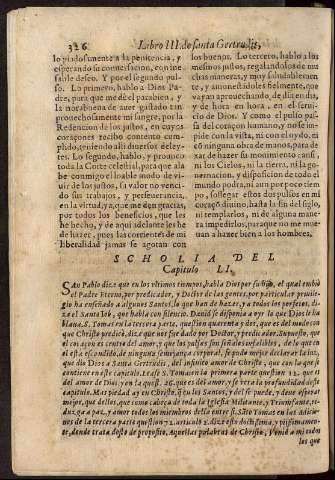 326 Libro III. de santa Gertrudis,
lo piadosamente a la penitencia, y
esperando la conuersacion, con ine-
fable deseo. Y por el segundo pulso.
Lo primero, hablo a Dios Padre,
para que me dè el parabien, y
la norabuena de auer gastado tan
prouechosamente mi sangre, por la
Redencion de los justos, en cuyos
coraçones recibo contento cumplido,
teniendo alli diuersos deleytes.
Lo segundo, hablo, y prouoco
toda la Corte celestial, para que alabe
conmigo el loable modo de viuir
de los justos, su valor no vencido
sus trabajos, y perseuerancia,
en la virtud, y a que me den gracias,
por todos los beneficios, que les
he hecho, y de aqui adelante les he
de hazer, pues las corrientes de mi
liberalidad jamas se agotan con
los buenos. Lo tercero, hablo a los
mesmos justos, regalandolos de muchas
maneras, y muy saludablemente,
y amonestãdoles fielmente, que
vayan aprouechando, de dia en dia,
y de hora en hora, en el seruicio
de Dios. Y como el pulso passa
del coraçon humano, no se impide
con la vista, ni con el oydo, ni cõ
ninguna obra de manos, para dexar
de hazer su mouimiento: assi,
ni los Cielos, ni la tierra, ni la gouernacion,
y disposicion de todo el
mundo podra, ni aun por poco tiempo,
sossegar estos dos pulsos en mi
coraçõ diuino, hasta la fin del siglo,
ni templarlos, ni de alguna manera
impedirlos, para que no me mueuan
a hazer bien a los hombres.
SCHOLIA DEL
Capitulo LI.
SAn Pablo dize que en los vltimos tiempos, habla Dios por su hijo, el qual embiò
el Padre Eterno, por predicador, y Dotor de las gentes, por particular priuilegio
ha enseñado a algunos Santos, lo que han de hazer, y a todos los perfetos, dize
el Santo Iob, que habla con silencio. Dauid se disponia a oyr lo que Dios le hablaua.
S. Tomas en la tercera parte, question quarenta y dos, que es del modo con
que Christo predicò, dize que nos fue dado por Dotor, y predicador. Supuesto, que
el coraçon es centro del amor, y que los pulsos son señales infalibles, de lo que en
el està escondido, de ninguna semejança corporal, se pudo mejor declarar la infusion,
que dio Dios a Santa Gertrudis, del infinito amor de Christo, que con la que se
contiene en este capitulo. Lease S. Tomas en la primera parte question 12. que es
del amor de Dios, y en la quest. 26. que es del amor, y se vera la profundidad deste
capitulo. Mas piedad ay en Christo, q̃ en los Santos, y del se puede, y deue esperar
mejor, que dellos, que como cabeça de toda la Iglesia Militante, y Triumfante, produzga
paz, y amor todos los miembros della entre si. Sãto Tomas en las adiciones
de la tercera parte question 72. articulo 2. dize esto doctissima, y pijssimamente,
donde trata desto de proposito. Aquellas palabras de Christo. Venid a mi todos
los que